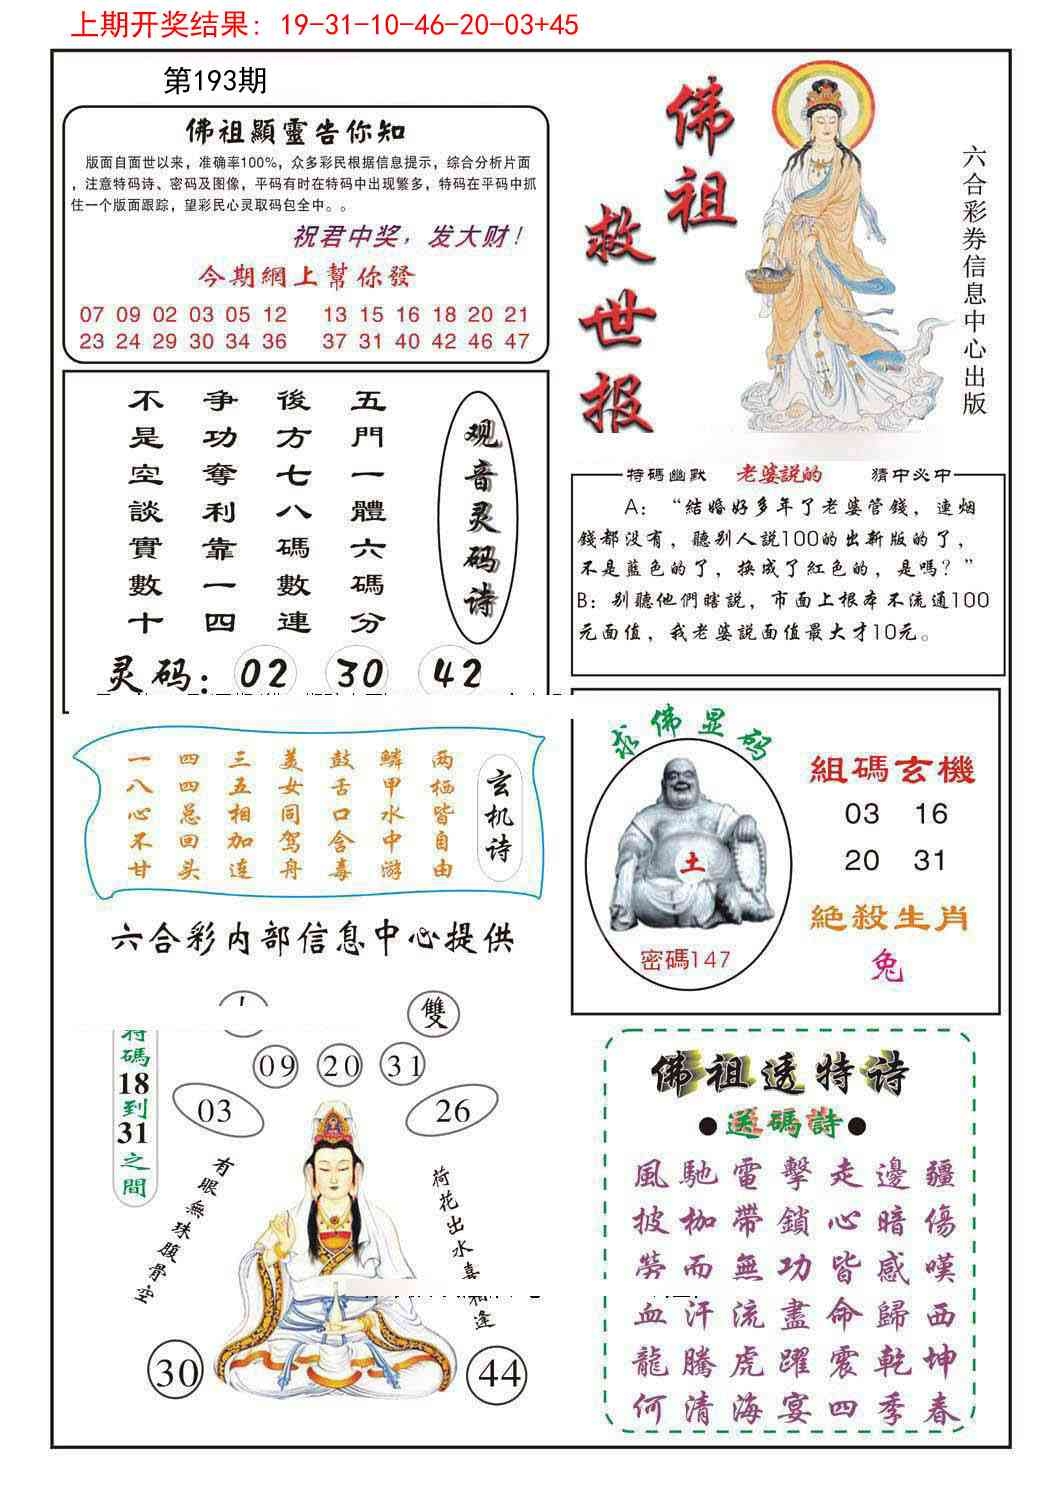 上期开奖结果：19-31-10-46-20-03+45
第193期
佛祖顯靈告你知
版面自面世以来，准确率100%，众多彩民根据信息提示，综合分析片面
，注意特码诗、密码及图像，平码有时在特码中出现繁多，特码在平码中抓
住一个版面跟踪，望彩民心灵取码包全中。。
祝君中奖，发大财！
今期網上幫你發
07 09 02 03 05 12 13 15 16 18 20 21
23 24 29 30 34 36 37 31 40 42 46 47
佛祖
救世报
六合彩券信息中心出版
观音灵码诗
五門一體六碼分
後方七八碼數連
爭功奪利靠一四
不是空談實數十
灵码：02 30 42
特碼幽默 老婆説的 猜中必中
A：“結婚好多年了老婆管錢，連烟
錢都没有，聽别人説100的出新版的了，
不是藍色的了，换成了紅色的，是嗎？”
B：别聽他們瞎説，市面上根本不流通100
元面值，我老婆説面值最大才10元。
玄机诗
两栖皆自由
鳞甲水中游
鼓舌口含毒
美女同驾舟
三五相加连
四四总回头
一八心不甘
六合彩内部信息中心提供
求佛显码
土
密碼147
組碼玄機
03 16
20 31
絶殺生肖
兔
雙
09 20 31
03 26
特碼18到31之間
有眼無珠腹骨空
荷花出水喜相逢
30 44
佛祖透特诗
●送碼詩●
風馳電擊走邊疆
披枷帶鎖心暗傷
勞而無功皆感嘆
血汗流盡命歸西
龍騰虎躍震乾坤
何清海宴四季春